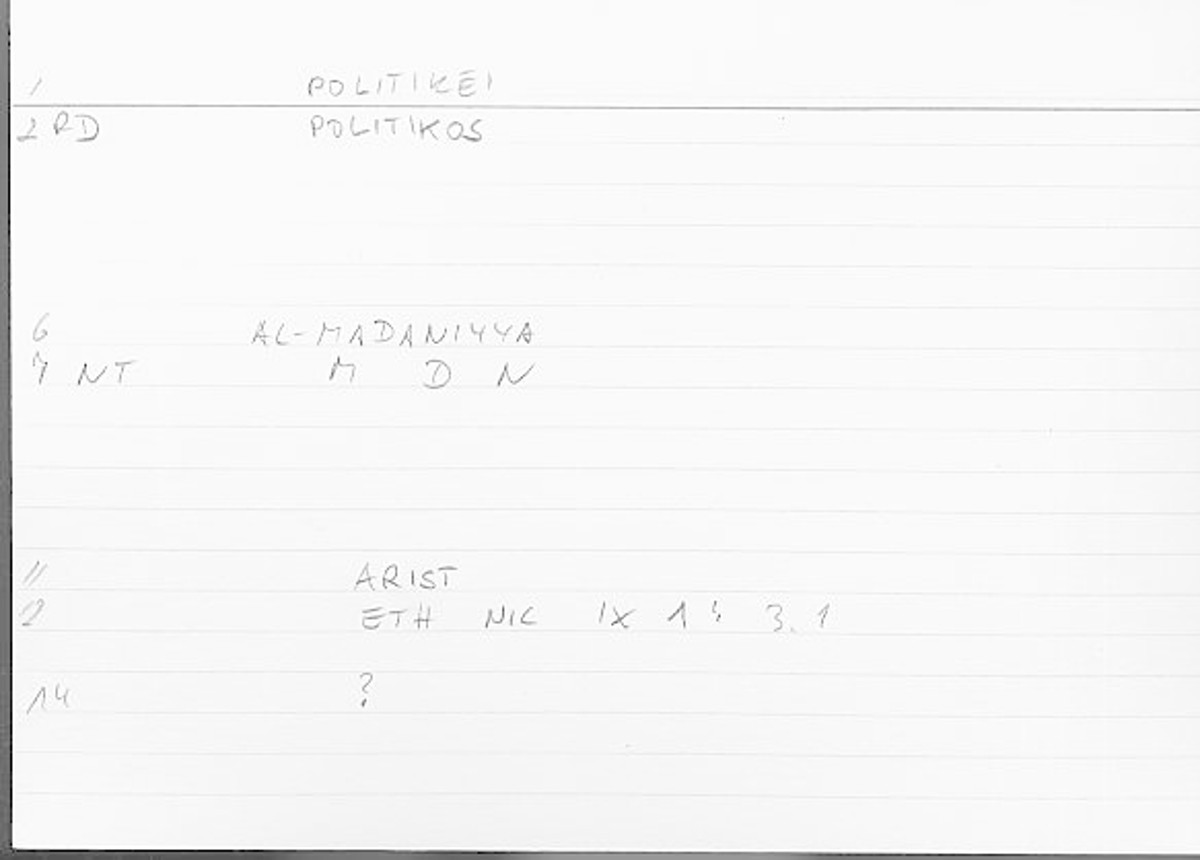 1 POLITIKEI
2 RD POLITIKOS
6 AL-MADANIYYA
7 NT M D N
11 ARIST
2 ETH NIC IX 1 3.1
14 ?